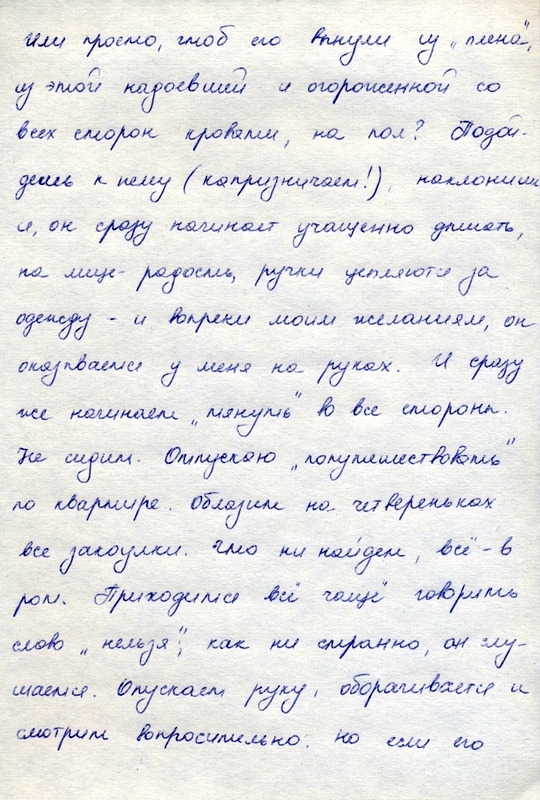 Или просто, чтоб его вынули из „плена",
из этой надоевшей и огороженной со
всех сторон кровати, на пол? Подой-
дешь к нему (капризничает!), наклонишь
ся, он сразу начинает учащенно дышать,
на лице - радость, ручки цепляются за
одежду - и вопреки моим желаниям, он
оказывается у меня на руках. И сразу
же начинает „тянуть" во все стороны.
Не сидит. Отпускаю „попутешествовать"
по квартире. Облазит на четвереньках
все закоулки. Что ни найдет, всё - в
рот. Приходится всё чаще говорить
слово „нельзя"; как ни странно, он слу-
шается. Опускает руку, оборачивается и
смотрит вопросительно. Но если его